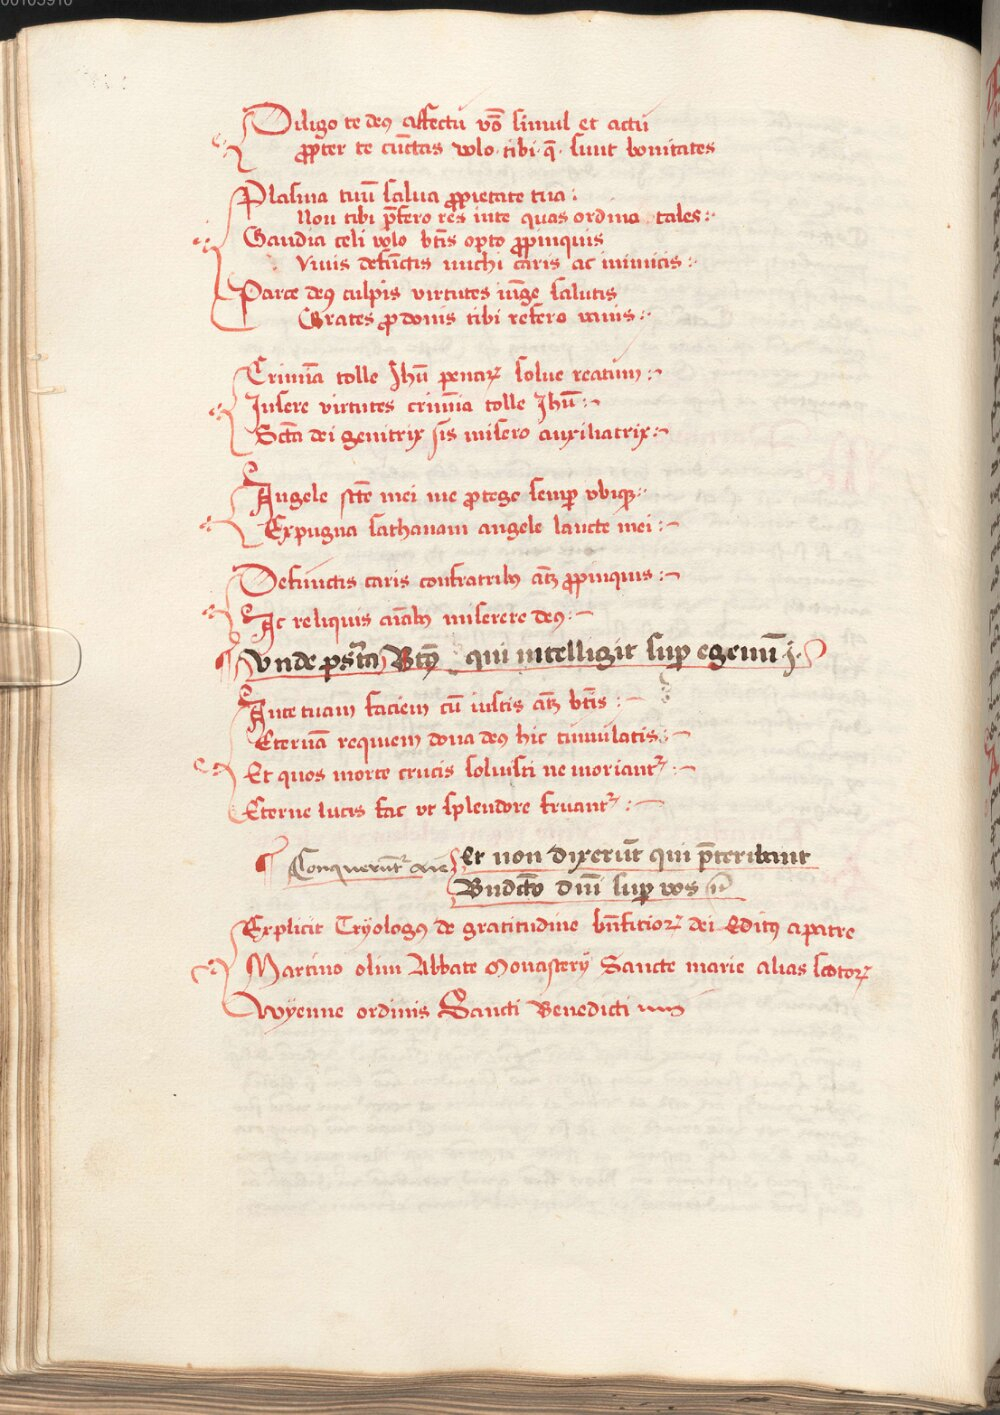 00103910
Diligo te deꝰ affectu vō simul et actu
ꝓpter te cūctas volo tibi q̄ sunt bonitates
Plasma tuū salua ꝓpietate tua :
Non tibi p̄fero res in te quas ordina tales :
Gaudia celi volo btīs opto ꝓpinquis
Viuis defūctis michi caris ac inimicis :
Parce deꝰ culpis virtutes iūge salutis
Grates ꝓ donis tibi refero vnius :
Crimīa tolle Jhū penaꝝ solue reatum :
Insere virtutes crimīa tolle Jhū :
Sctā dei genitrix sis misero auxiliatrix :
Angele sctē mei me ꝓtege semꝑ vbiqꝫ
Expugna sathanam angele sancte mei :
Defunctis caris confratribꝫ atqꝫ ꝓpinquis :
Ac reliquis aīabꝫ miserere deꝰ
qui intelligit suꝑ egenū
Ante tuam faciem cū iustis atqꝫ btīs :
Eternā requiem dona deꝰ hic tumulatis :
Et quos morte crucis soluisti ne moriant᷑ :
Eterne lucis fac vt splendore fruant᷑ :
Conquerūt᷑ aīe Et non dixerūt qui p̄teribant
Bndctō dnī suꝑ vos
Explicit Tryologꝰ de gratitudine bn̄fitioꝝ dei Editꝰ a patre
Martino olim Abbate Monasterij Sancte marie alias scotoꝝ
Wyenne ordinis Sancti Benedicti